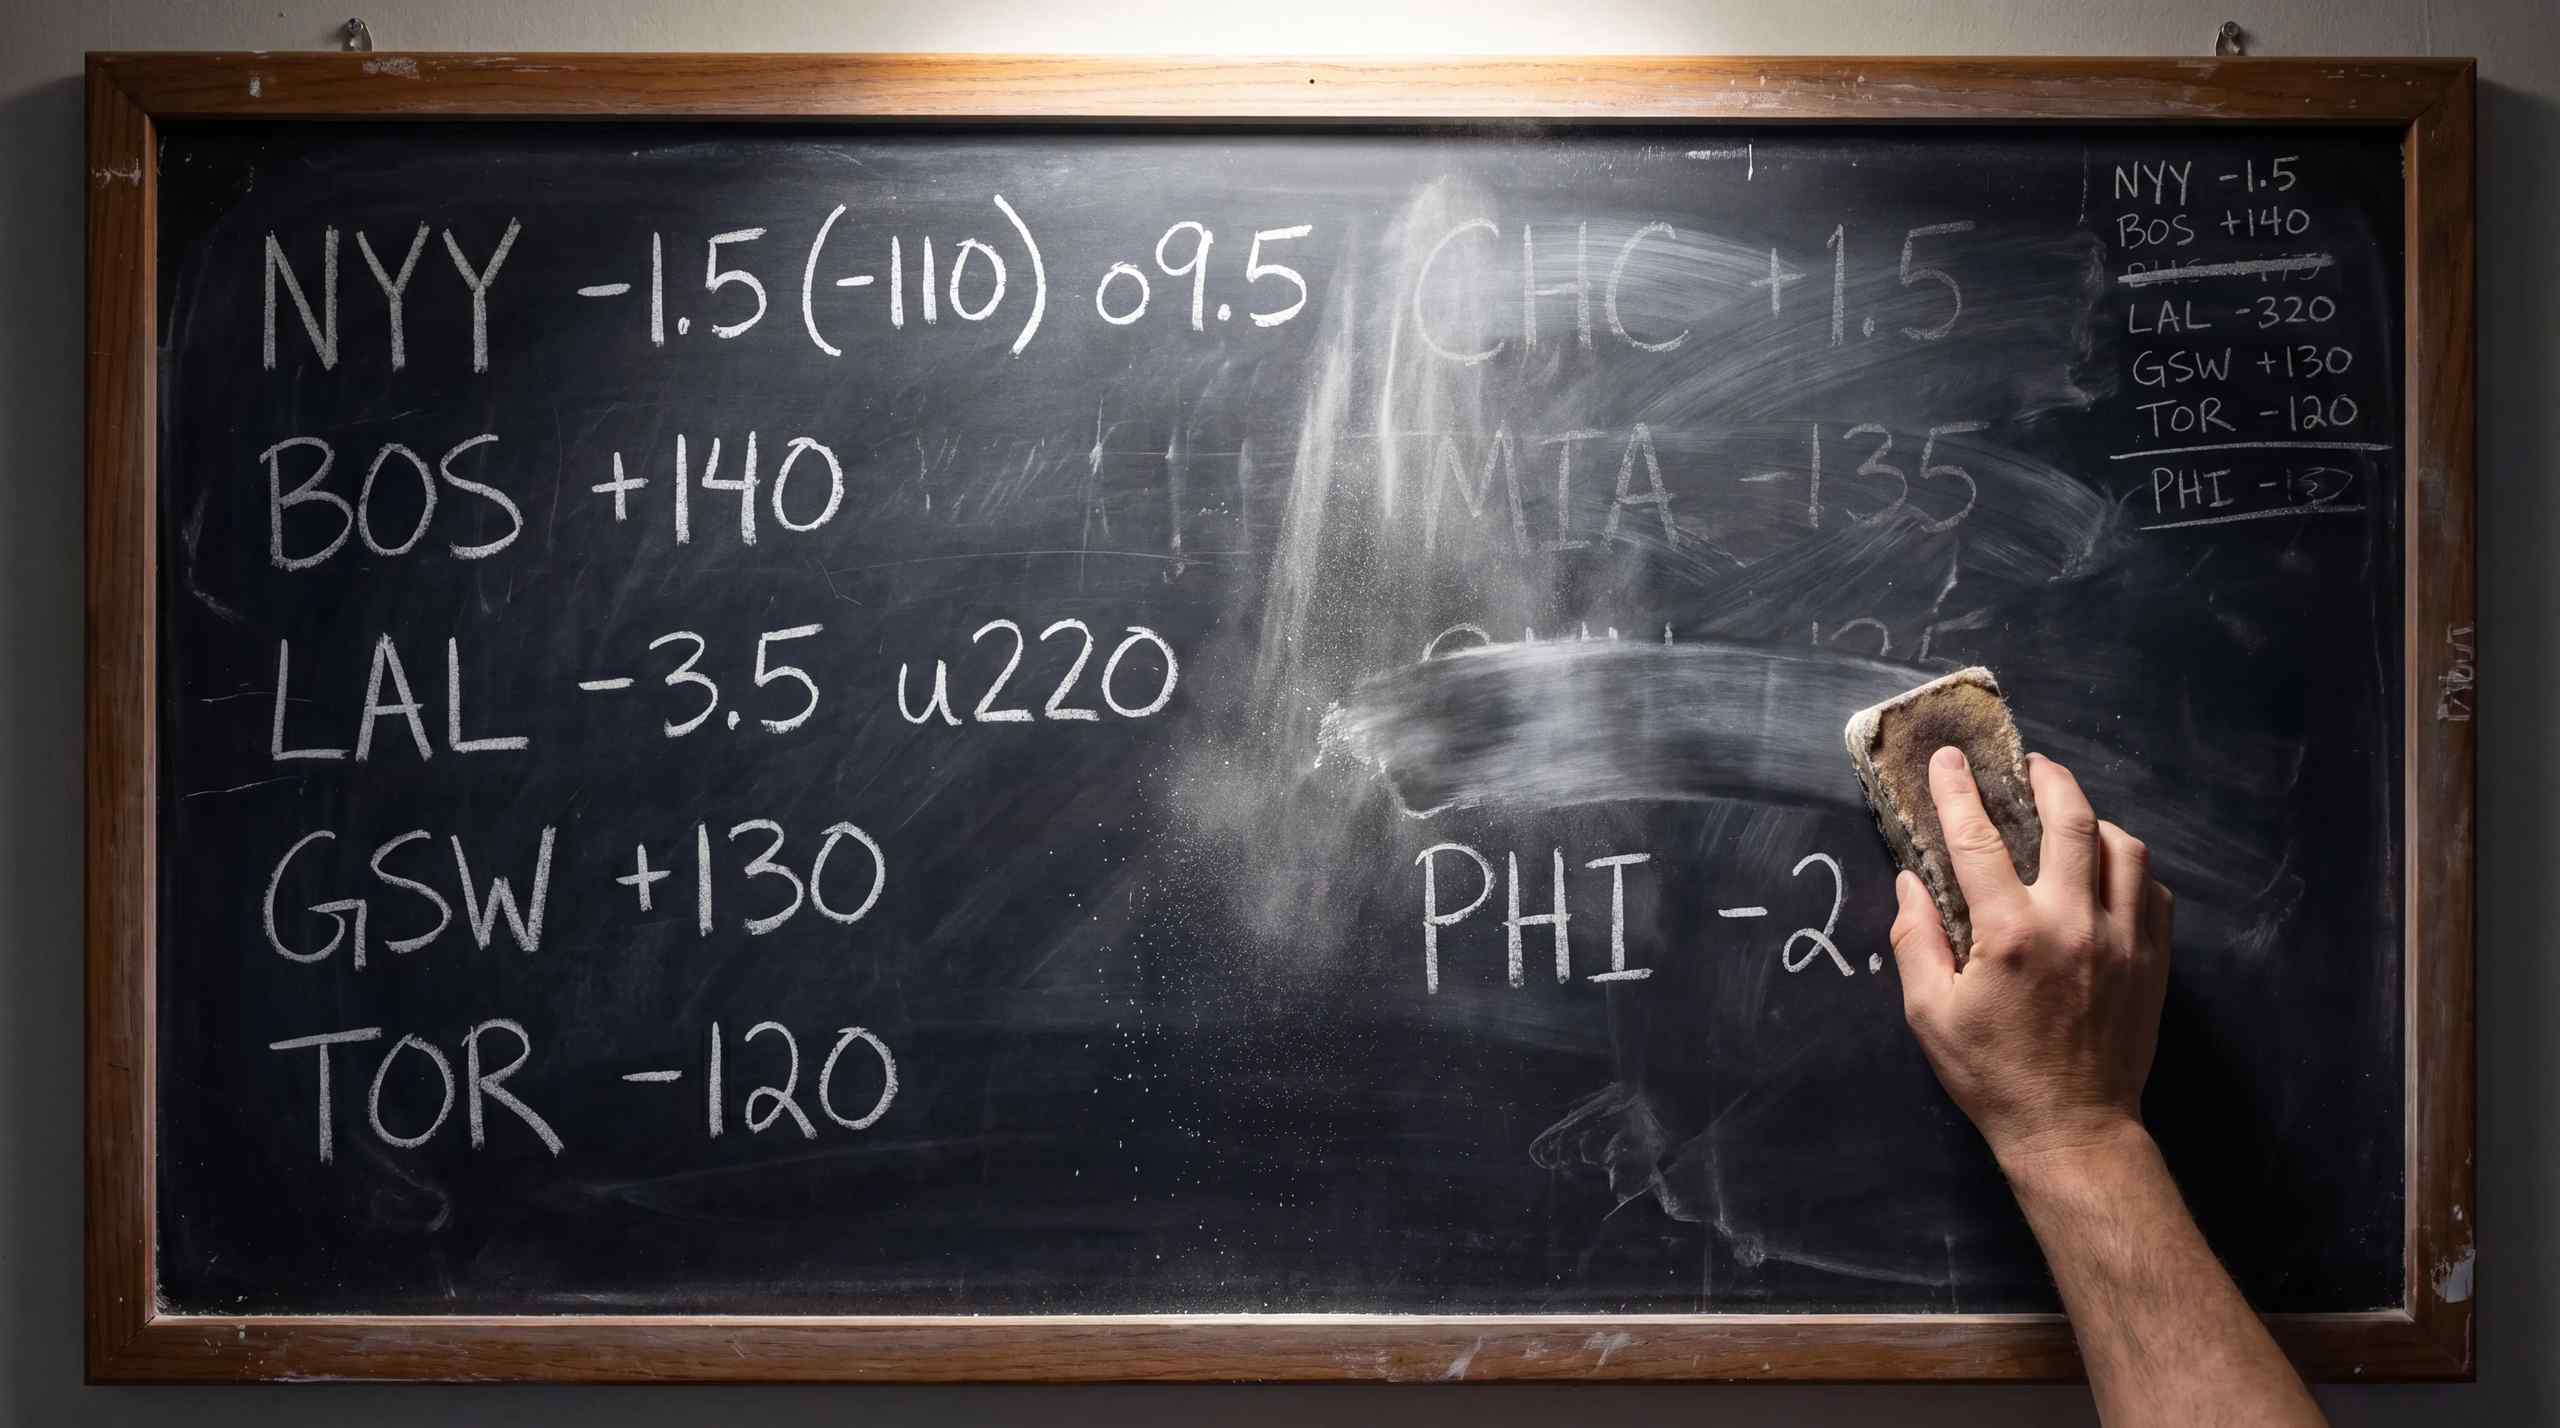 NYY -1.5 (-110) o9.5
BOS +140
LAL -3.5 u220
GSW +130
TOR -120
CHC +1.5
MIA -135
PHI -2.
NYY -1.5
BOS +140
LAL -320
GSW +130
TOR -120
PHI